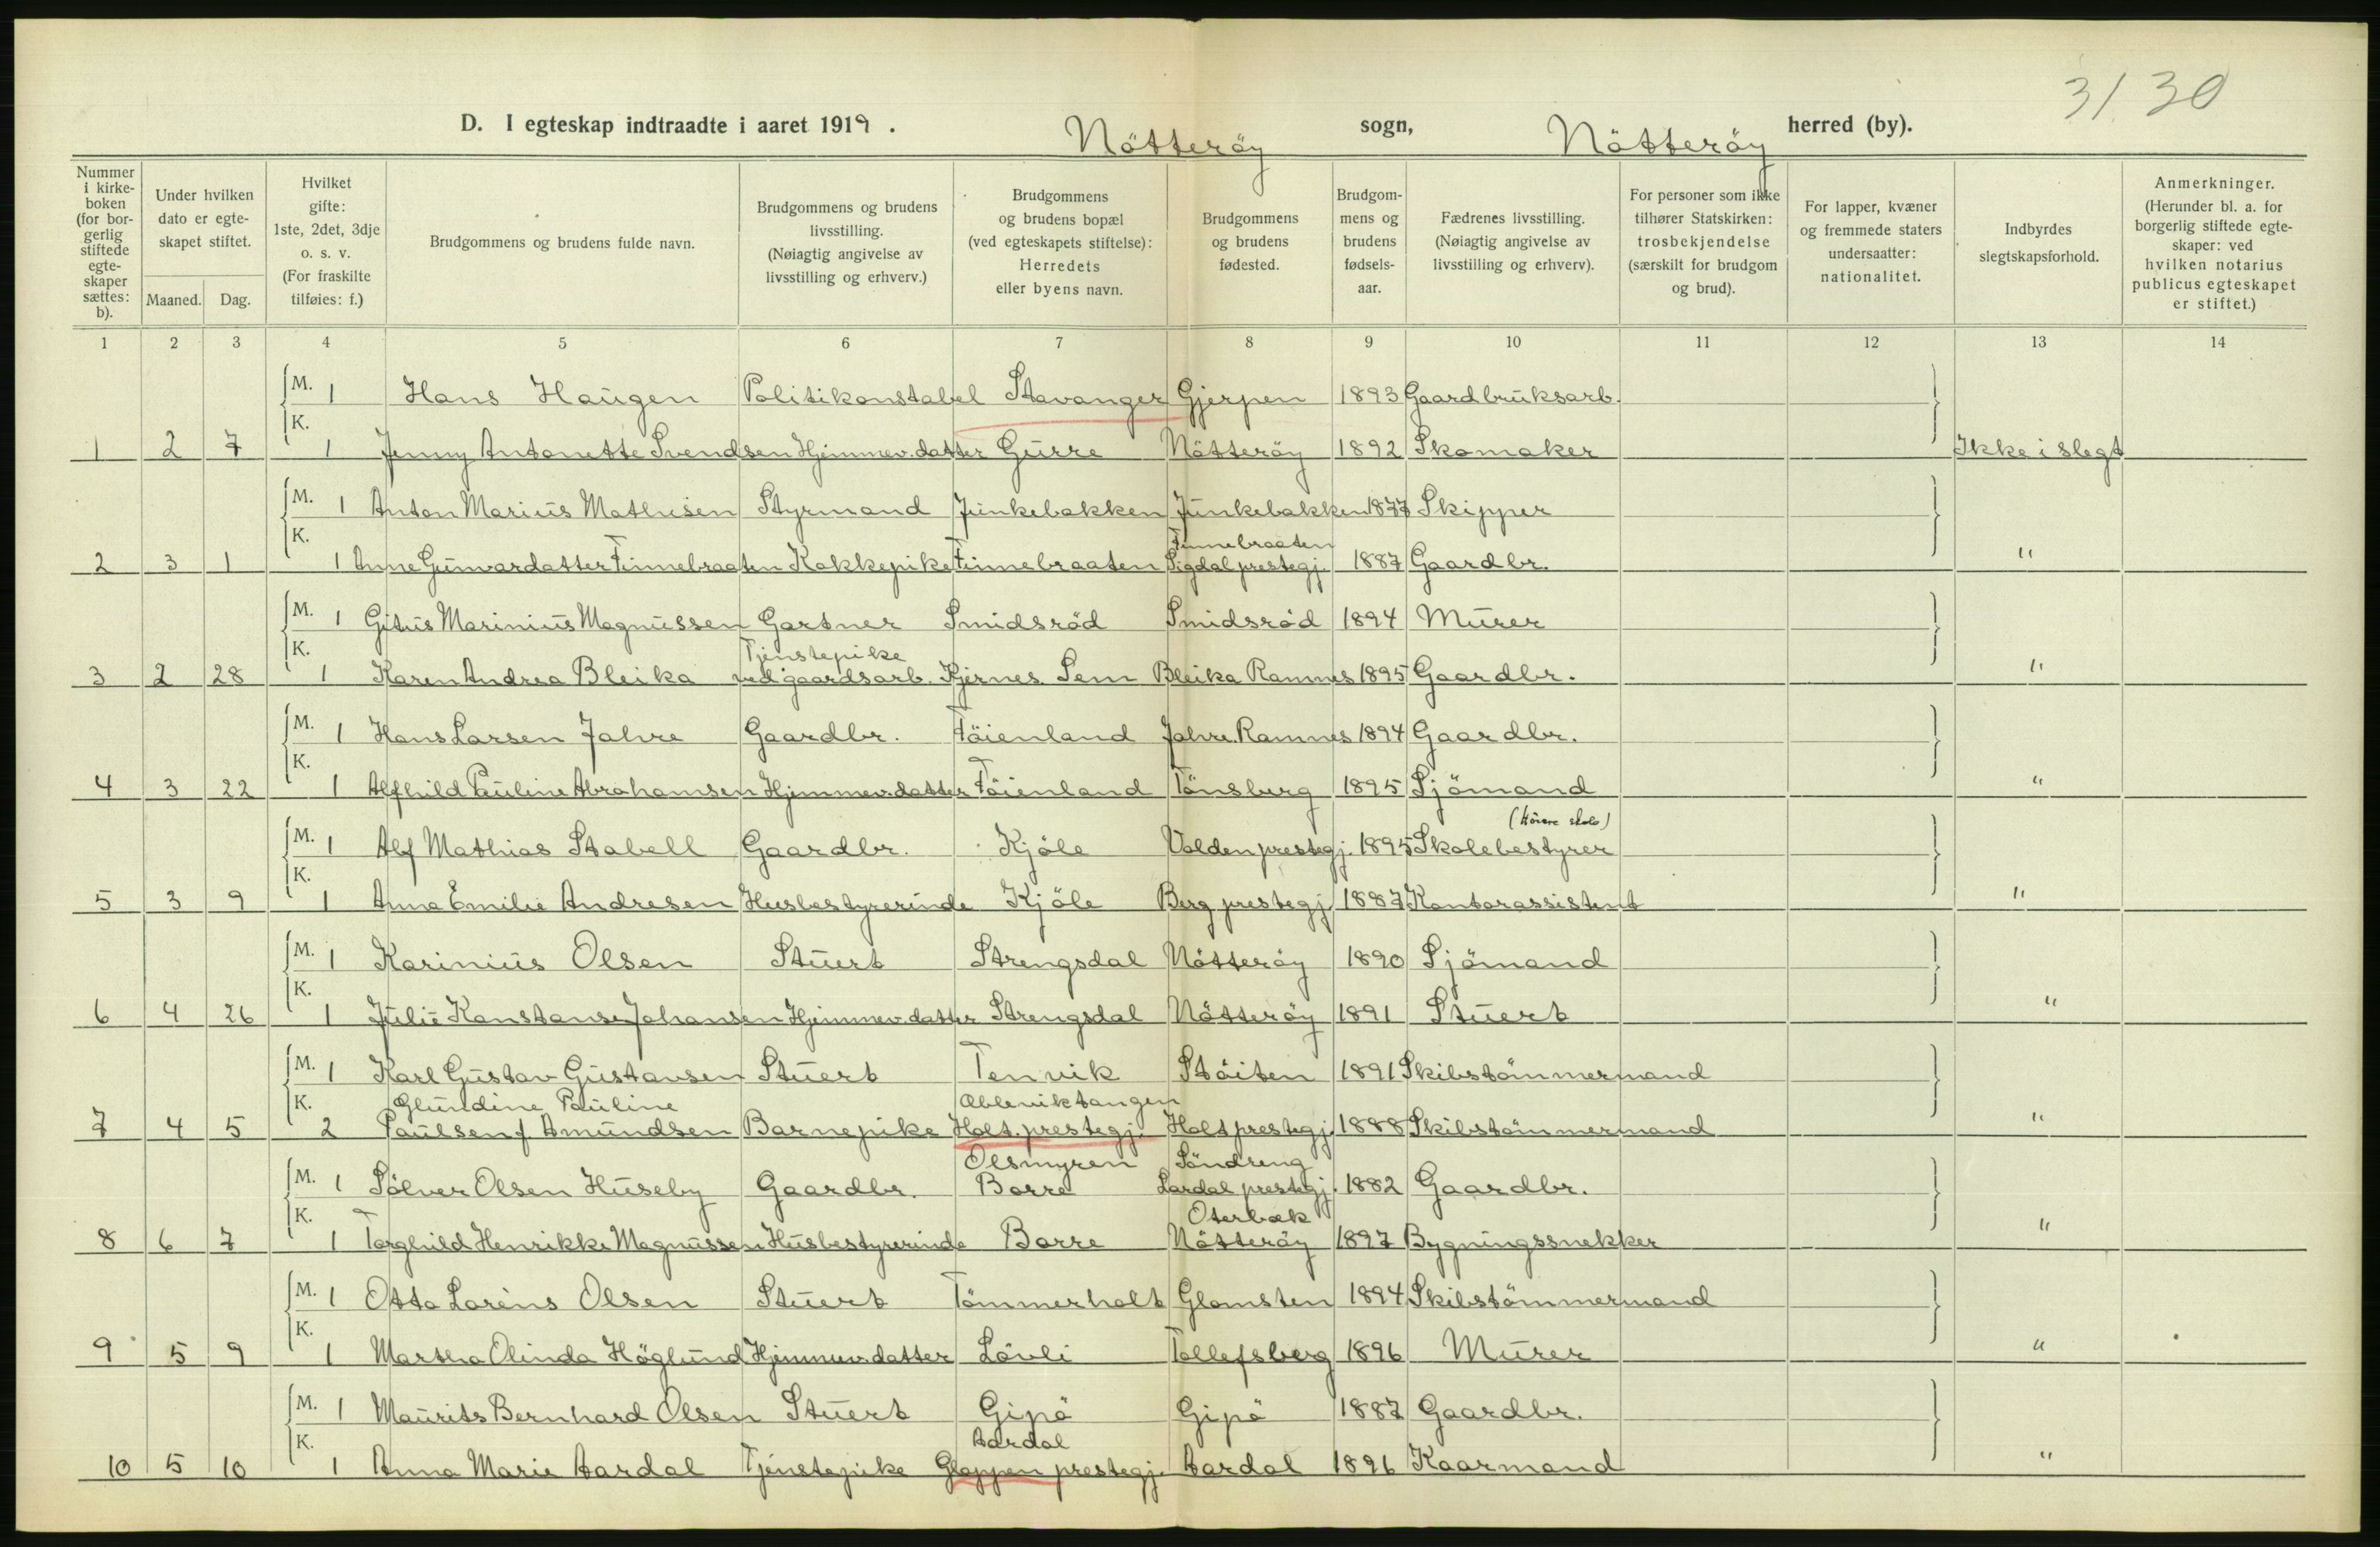 31 30
D. I egteskap indtraadte i aaret 1919. Nötteröy sogn, Nötteröy herred (by).
Nummer i kirkeboken (for borgerlig stiftede egteskaper sættes: b).
Under hvilken dato er egteskapet stiftet.
Maaned. Dag.
Hvilket gifte: 1ste, 2det, 3dje o. s. v. (For fraskilte tilføies: f.)
Brudgommens og brudens fulde navn.
Brudgommens og brudens livsstilling. (Nøiagtig angivelse av livsstilling og erhverv.)
Brudgommens og brudens bopæl (ved egteskapets stiftelse): Herredets eller byens navn.
Brudgommens og brudens fødested.
Brudgommens og brudens fødselsaar.
Fædrenes livsstilling. (Nøiagtig angivelse av livsstilling og erhverv).
For personer som ikke tilhører Statskirken: trosbekjendelse (særskilt for brudgom og brud).
For lapper, kvæner og fremmede staters undersaatter: nationalitet.
Indbyrdes slegtskapsforhold.
Anmerkninger. (Herunder bl. a. for borgerlig stiftede egteskaper: ved hvilken notarius publicus egteskapet er stiftet.)
1 2 3 4 5 6 7 8 9 10 11 12 13 14
M. 1 Hans Haugen Politikonstabel Stavanger Gjerpen 1893 Gaardbruksarb.
K.
1 2 7 1 Jenny Antonette Svendsen Hjemmev.datter Gurre Nötteröy 1892 Skomaker Ikke i slegt
M. 1 Anton Marius Mathisen Styrmand Junkebakken Junkebakken 1877 Skipper
K. Finnebraaten
2 3 1 1 Anne Gunvardatter Finnebraaten Kokkepike Finnebraaten Sigdal prestegj. 1887 Gaardbr. "
M. 1 Gitus Marinius Magnussen Gartner Smidsröd Smidsröd 1894 Murer
K. Tjenstepike
3 2 28 1 Karen Andrea Bleika ved gaardsarb. Kjernes Sem Bleika Ramnes 1895 Gaardbr. "
M. 1 Hans Larsen Jahre Gaardbr. Föienland Jahre Ramnes 1894 Gaardbr.
K.
4 3 22 1 Alfhild Pauline Abrahamsen Hjemmev.datter Föienland Tönsberg 1895 Sjömand "
(höiere skole)
M. 1 Alf Mathias Stabell Gaardbr. Kjöle Volden prestegj. 1895 Skolebestyrer
K.
5 3 9 1 Anna Emilie Andresen Husbestyrerinde Kjöle Berg prestegj. 1887 Kontorassistent "
M. 1 Karinius Olsen Stuert Strengsdal Nötteröy 1890 Sjömand
K.
6 4 26 1 Julie Konstanse Johansen Hjemmev.datter Strengsdal Nötteröy 1891 Stuert "
M. 1 Karl Gustav Gustavsen Stuert Tenvik Stöiten 1891 Skibstömmermand
K. Glundine Pauline Ableviktangen
7 4 5 2 Paulsen f. Amundsen Barnepike Holt prestegj. Holt prestegj. 1888 Skibstömmermand "
Olsmyren Söndreng
M. 1 Sölver Olsen Huseby Gaardbr. Borre Lardal prestegj. 1882 Gaardbr.
K. Oterbæk
8 6 7 1 Torghild Henrikke Magnussen Husbestyrerinde Borre Nötteröy 1897 Bygningssnekker "
M. 1 Otto Lorens Olsen Stuert Tömmerholt Glomsten 1894 Skibstömmermand
K.
9 5 9 1 Martha Olinda Höglund Hjemmev.datter Lövli Tollefsberg 1896 Murer "
M. 1 Maurits Bernhard Olsen Stuert Gipö Gipö 1887 Gaardbr.
K. Aardal
10 5 10 1 Anna Marie Aardal Tjenstepike Gloppen prestegj. Aardal 1896 Kaarmand "